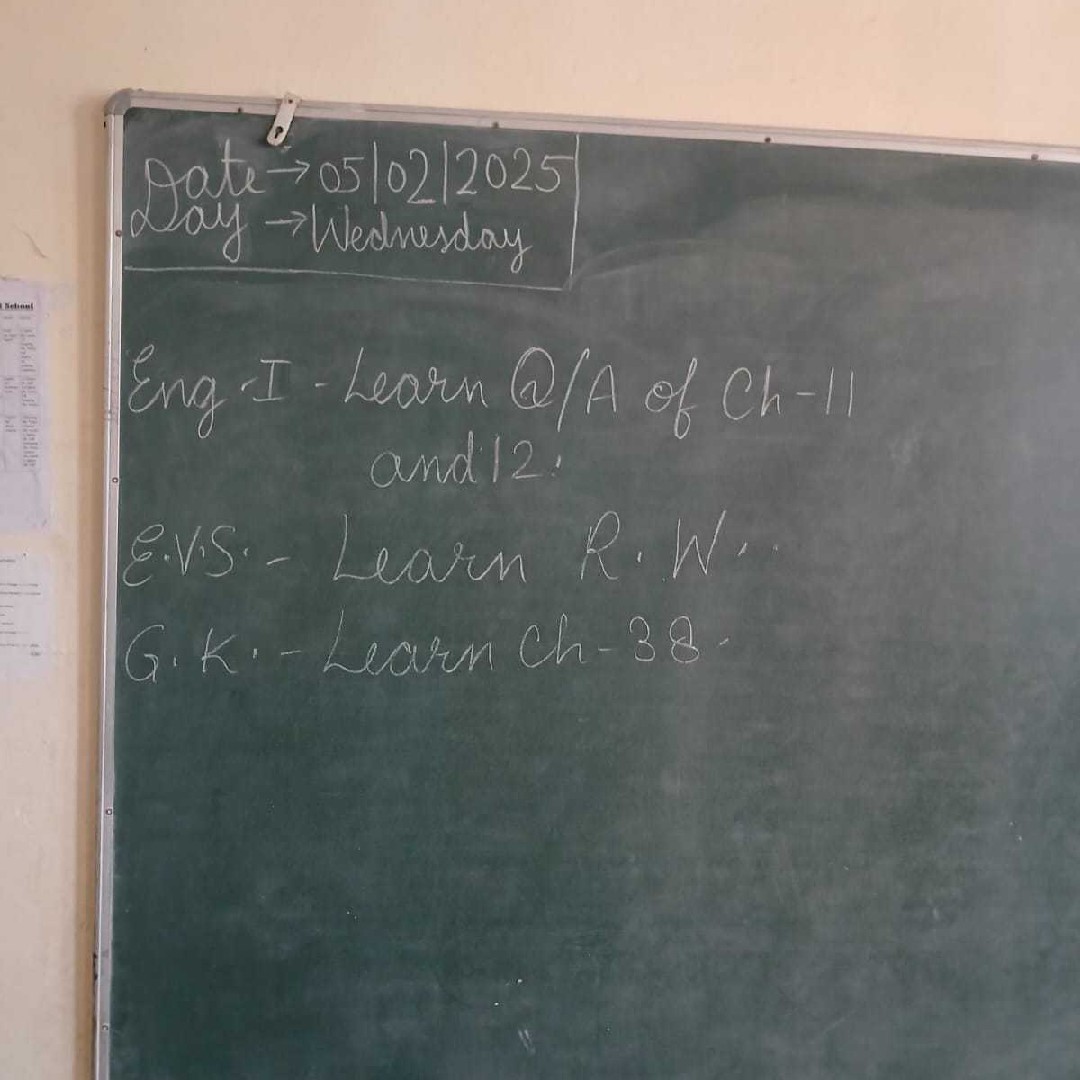 Date → 05|02|2025
Day → Wednesday
Eng-I - Learn Q/A of Ch-11
and 12.
E.V.S. - Learn R.W..
G.K. - Learn Ch-38.
School